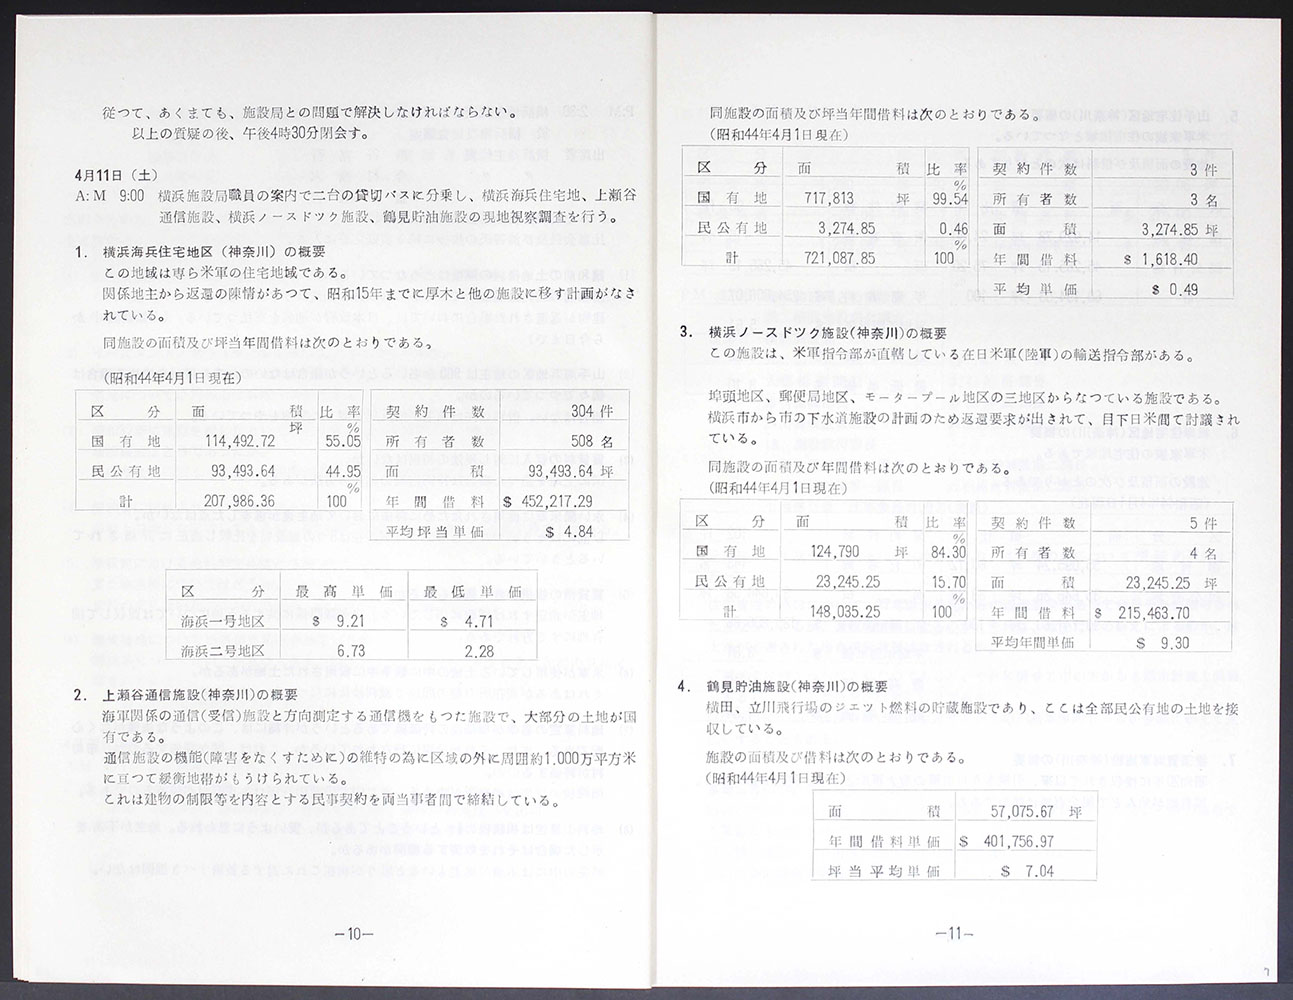 従つて、あくまでも、施設局との問題で解決しなければならない。
以上の質疑の後、午後4時30分閉会す。
4月11日（土）
A:M 9:00 横浜施設局職員の案内で二台の貸切バスに分乗し、横浜海兵住宅地、上瀬谷
通信施設、横浜ノースドツク施設、鶴見貯油施設の現地視察調査を行う。
1. 横浜海兵住宅地区（神奈川）の概要
この地域は専ら米軍の住宅地域である。
関係地主から返還の陳情があつて、昭和15年までに厚木と他の施設に移す計画がなさ
れている。
同施設の面積及び坪当年間借料は次のとおりである。
（昭和44年4月1日現在）
区 分 面 積 比 率 契 約 件 数 304 件
坪 %
国 有 地 114,492.72 55.05 所 有 者 数 508 名
民 公 有 地 93,493.64 44.95 面 積 93,493.64 坪
%
計 207,986.36 100 年 間 借 料 $ 452,217.29
平均坪当単価 $ 4.84
区 分 最 高 単 価 最 低 単 価
海浜一号地区 $ 9.21 $ 4.71
海浜二号地区 6.73 2.28
2. 上瀬谷通信施設（神奈川）の概要
海軍関係の通信（受信）施設と方向測定する通信機をもつた施設で、大部分の土地が国
有である。
通信施設の機能（障害をなくすために）の維特の為に区域の外に周囲約1.000万平方米
に亘つて緩衝地帯がもうけられている。
これは建物の制限等を内容とする民事契約を両当事者間で締結している。
—10—
同施設の面積及び坪当年間借料は次のとおりである。
（昭和44年4月1日現在）
区 分 面 積 比 率 契 約 件 数 3 件
%
国 有 地 717,813 坪 99.54 所 有 者 数 3 名
民 公 有 地 3,274.85 0.46 面 積 3,274.85 坪
%
計 721,087.85 100 年 間 借 料 $ 1,618.40
平 均 単 価 $ 0.49
3. 横浜ノースドツク施設（神奈川）の概要
この施設は、米軍指令部が直轄している在日米軍（陸軍）の輸送指令部がある。
埠頭地区、郵便局地区、モータープール地区の三地区からなつている施設である。
横浜市から市の下水道施設の計画のため返還要求が出されて、目下日米間で討議され
ている。
同施設の面積及び年間借料は次のとおりである。
（昭和44年4月1日現在）
区 分 面 積 比 率 契 約 件 数 5 件
%
国 有 地 124,790 坪 84.30 所 有 者 数 4 名
民 公 有 地 23,245.25 15.70 面 積 23,245.25 坪
%
計 148,035.25 100 年 間 借 料 $ 215,463.70
平均年間単価 $ 9.30
4. 鶴見貯油施設（神奈川）の概要
横田、立川飛行場のジエツト燃料の貯蔵施設であり、ここは全部民公有地の土地を接
収している。
施設の面積及び借料は次のとおりである。
（昭和44年4月1日現在）
面 積 57,075.67 坪
年 間 借 料 単 価 $ 401,756.97
坪 当 平 均 単 価 $ 7.04
—11—